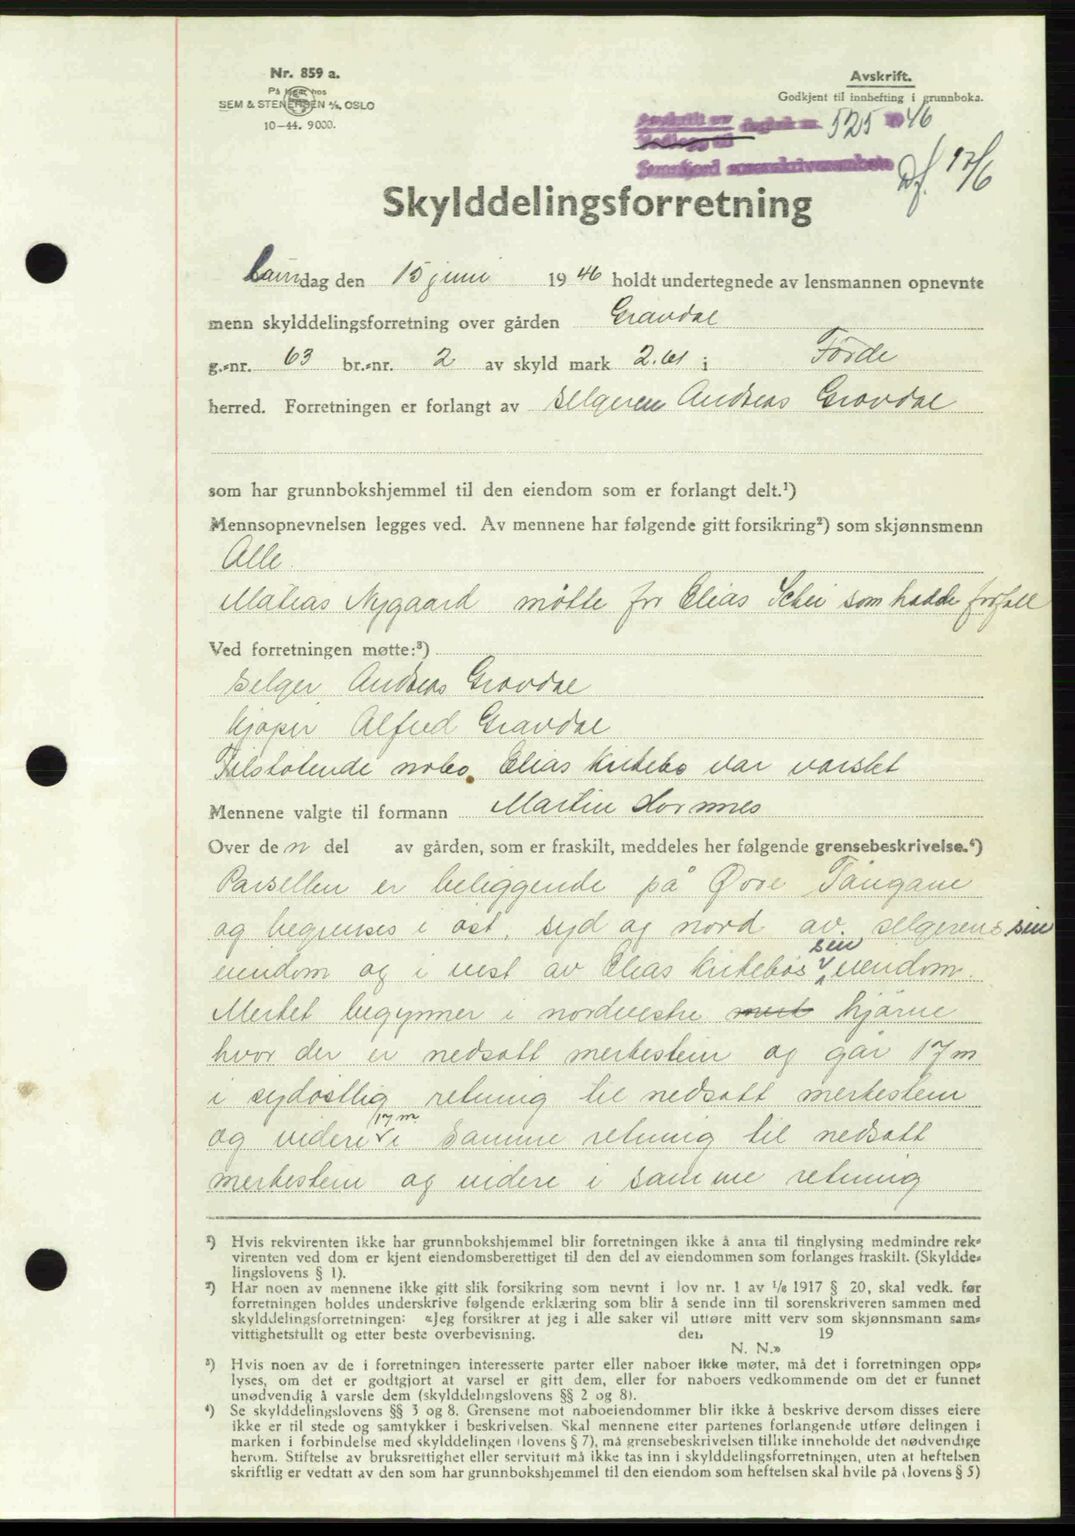 Nr. 859 a.
På lager hos
SEM & STENERSEN A/S, OSLO
10-44. 9000.
Avskrift.
Godkjent til innhefting i grunnboka.
Avskrift av dagbok nr. 525 1946
Vedlegg til
Sunnfjord sorenskriverembete
Df. 17/6
Skylddelingsforretning
Laurdag den 15 juni 1946 holdt undertegnede av lensmannen opnevnte
menn skylddelingsforretning over gården Gravdal
g.-nr. 63 br.-nr. 2 av skyld mark 2.61 i Förde
herred. Forretningen er forlangt av selgeren Andreas Gravdal
som har grunnbokshjemmel til den eiendom som er forlangt delt.¹)
Mennsopnevnelsen legges ved. Av mennene har følgende gitt forsikring²) som skjønnsmenn
Alle.
Matias Nygaard mötte for Elias Schei som hadde forfall
Ved forretningen møtte:³)
Selger Andreas Gravdal
Kjøper Alfred Gravdal
Tilstötende nabo Elias Kirkebö var varslet
Mennene valgte til formann Martin Hornnes
Over den del av gården, som er fraskilt, meddeles her følgende grensebeskrivelse.⁴)
Parsellen er beliggende på Øvre Tångane
og begrenses i öst, syd og nord av selgerens sin
eiendom og i vest av Elias Kirkebös sin eiendom.
Merket begynner i nordvestre mert hjörne
hvor der er nedsatt merkestein og går 17 m
i sydöstlig retning til nedsatt merkestein
og videre 17 m i samme retning til nedsatt
merkestein og videre i samme retning
¹) Hvis rekvirenten ikke har grunnbokshjemmel blir forretningen ikke å anta til tinglysing medmindre rek-
virenten ved dom er kjent eiendomsberettiget til den del av eiendommen som forlanges fraskilt. (Skyldde-
lingslovens § 1).
²) Har noen av mennene ikke gitt slik forsikring som nevnt i lov nr. 1 av 1/6 1917 § 20, skal vedk. før
forretningen holdes underskrive følgende erklæring som blir å sende inn til sorenskriveren sammen med
skylddelingsforretningen: «Jeg forsikrer at jeg i alle saker vil utføre mitt verv som skjønnsmann sam-
vittighetsfullt og etter beste overbevisning. den 19
N. N.»
³) Hvis noen av de i forretningen interesserte parter eller naboer ikke møter, må det i forretningen opp-
lyses, om det er godtgjort at varsel er gitt dem, eller for naboers vedkommende om det er funnet
unødvendig å varsle dem (skylddelingslovens §§ 2 og 8).
⁴) Se skylddelingslovens §§ 3 og 8. Grensene mot naboeiendommer blir ikke å beskrive dersom disses eiere
ikke er til stede og samtykker i beskrivelsen. Skal mennene etter partenes forlangende utføre delingen i
marken i forbindelse med skylddelingen (lovens § 7), må grensebeskrivelsen tillike inneholde det nødvendige
herom. Stiftelse av bruksrettighet eller servitutt må ikke tas inn i skylddelingsforretningen, uten at heftelsen
skriftlig er vedtatt av den som har grunnbokshjemmel til den eiendom som heftelsen skal hvile på (lovens § 5)